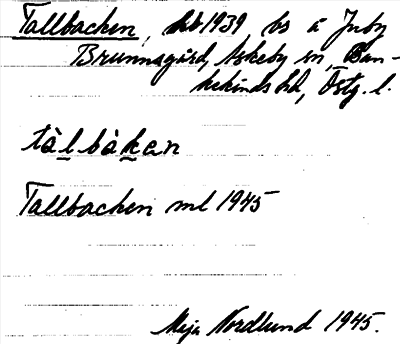 Tallbacken, bb 1939 bs å Juby
Brunnsgård, Askeby sn, Ban-
kekinds hd, Östg. l.
tàlbàken
Tallbacken ml 1945
Maja Nordlund 1945.